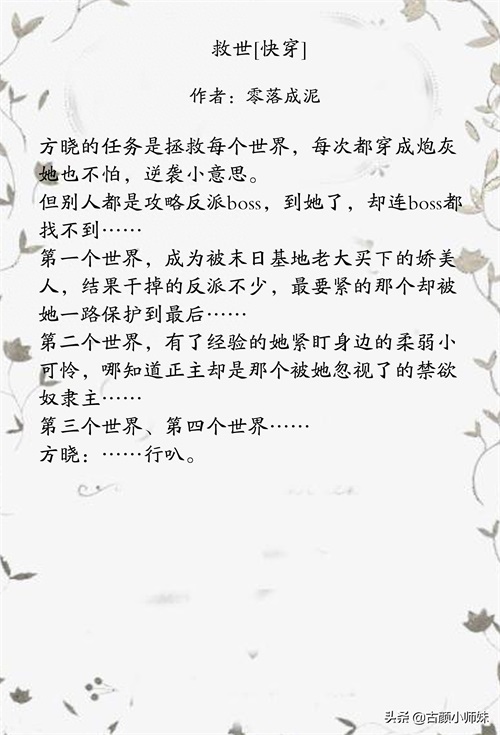 救世[快穿]
作者：零落成泥
方晓的任务是拯救每个世界，每次都穿成炮灰
她也不怕，逆袭小意思。
但别人都是攻略反派boss，到她了，却连boss都
找不到……
第一个世界，成为被末日基地老大买下的娇美
人，结果干掉的反派不少，最要紧的那个却被
她一路保护到最后……
第二个世界，有了经验的她紧盯身边的柔弱小
可怜，哪知道正主却是那个被她忽视了的禁欲
奴隶主……
第三个世界、第四个世界……
方晓：……行叭。
头条 @古颜小师妹